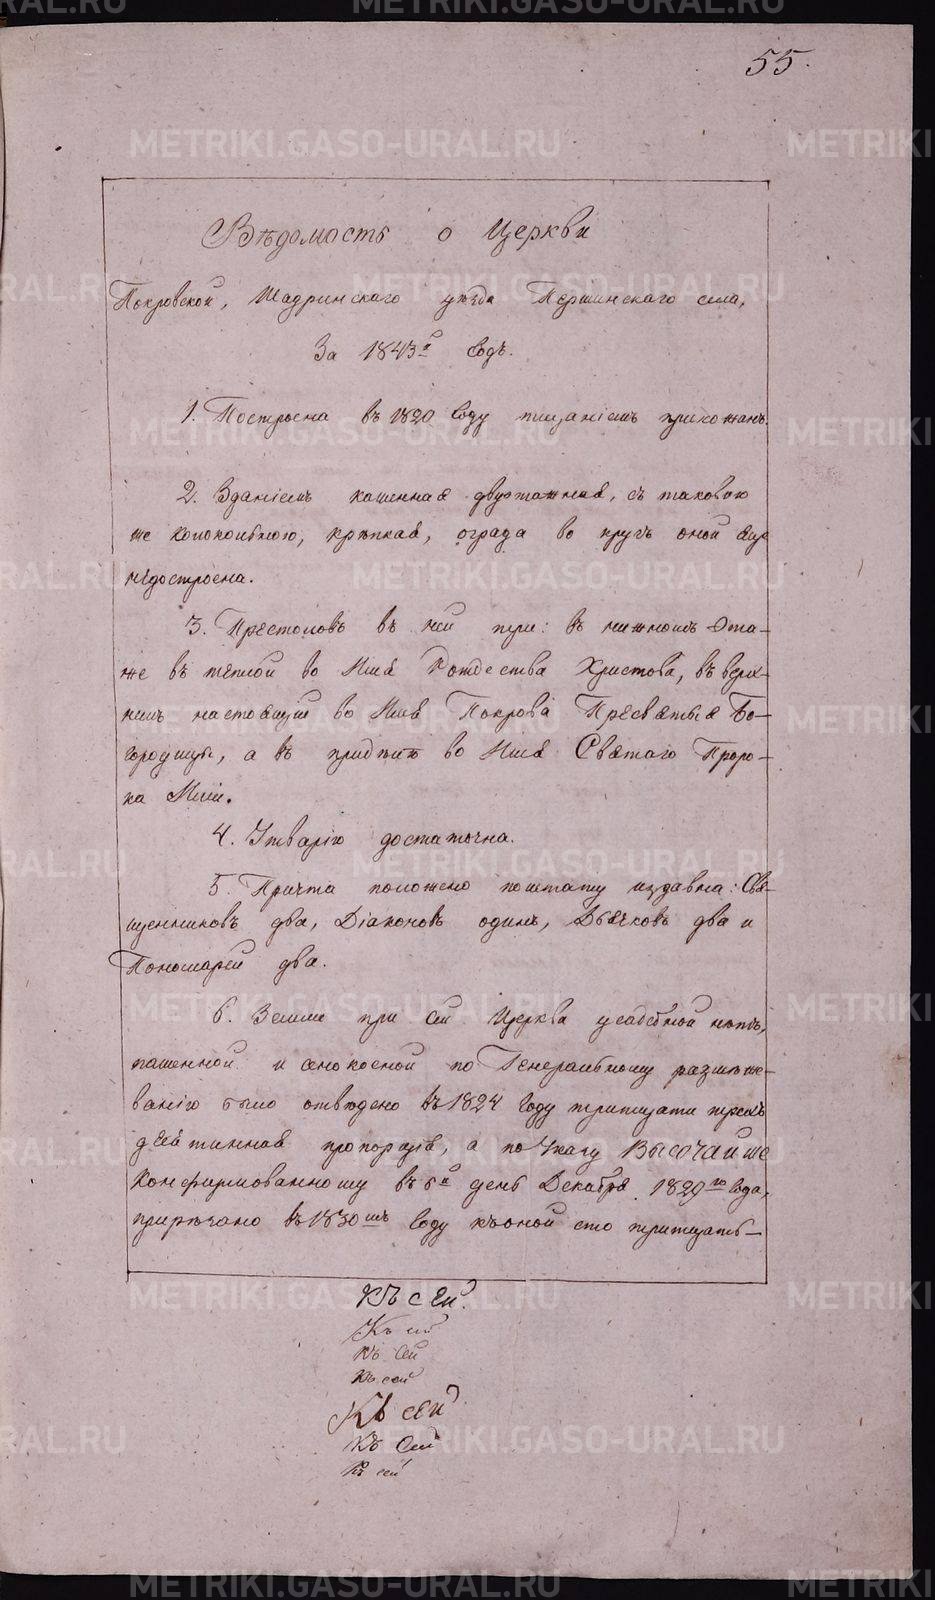 55.
Вѣдомость о Церкви
Покровской, Шадринскаго уѣзда Першинскаго села,
За 1843й Годъ.
1. Построена въ 1820 Году тщаніемъ прихожанъ.
2. Зданіемъ каменная двухэтажная, съ таковою
же колокольнею, крѣпкая, ограда во кругъ оной еще
недостроена.
3. Престоловъ въ ней три: въ нижномъ Эта-
же въ теплой во Имя Рождества Христова, въ верх-
немъ настоящій во Имя Покрова Пресвятыя Бо-
городицы, а въ придѣлѣ во Имя Святаго Проро-
ка Иліи.
4. Утварію достаточна.
5. Причта положено поштату издавна: Свя-
щенниковъ два, Діаконовъ одинъ, Дьячковъ два и
Пономарей два.
6. Земли при сей Церкви усадебной нѣтъ,
пашенной и сенокосной по Генеральному размѣже-
ванію было отведено въ 1824 Году тритцати трехъ
десятинная пропорція, а по Указу ВЫСОЧАЙШЕ
Конфирмованному въ 6й день Декабря 1829го Года,
прирѣзано въ 1830мъ Году къ оной сто тритцать
Къ сей
Къ сей
Къ сей
Къ сей
Къ сей
Къ сей
Къ сей
METRIKI.GASO-URAL.RU